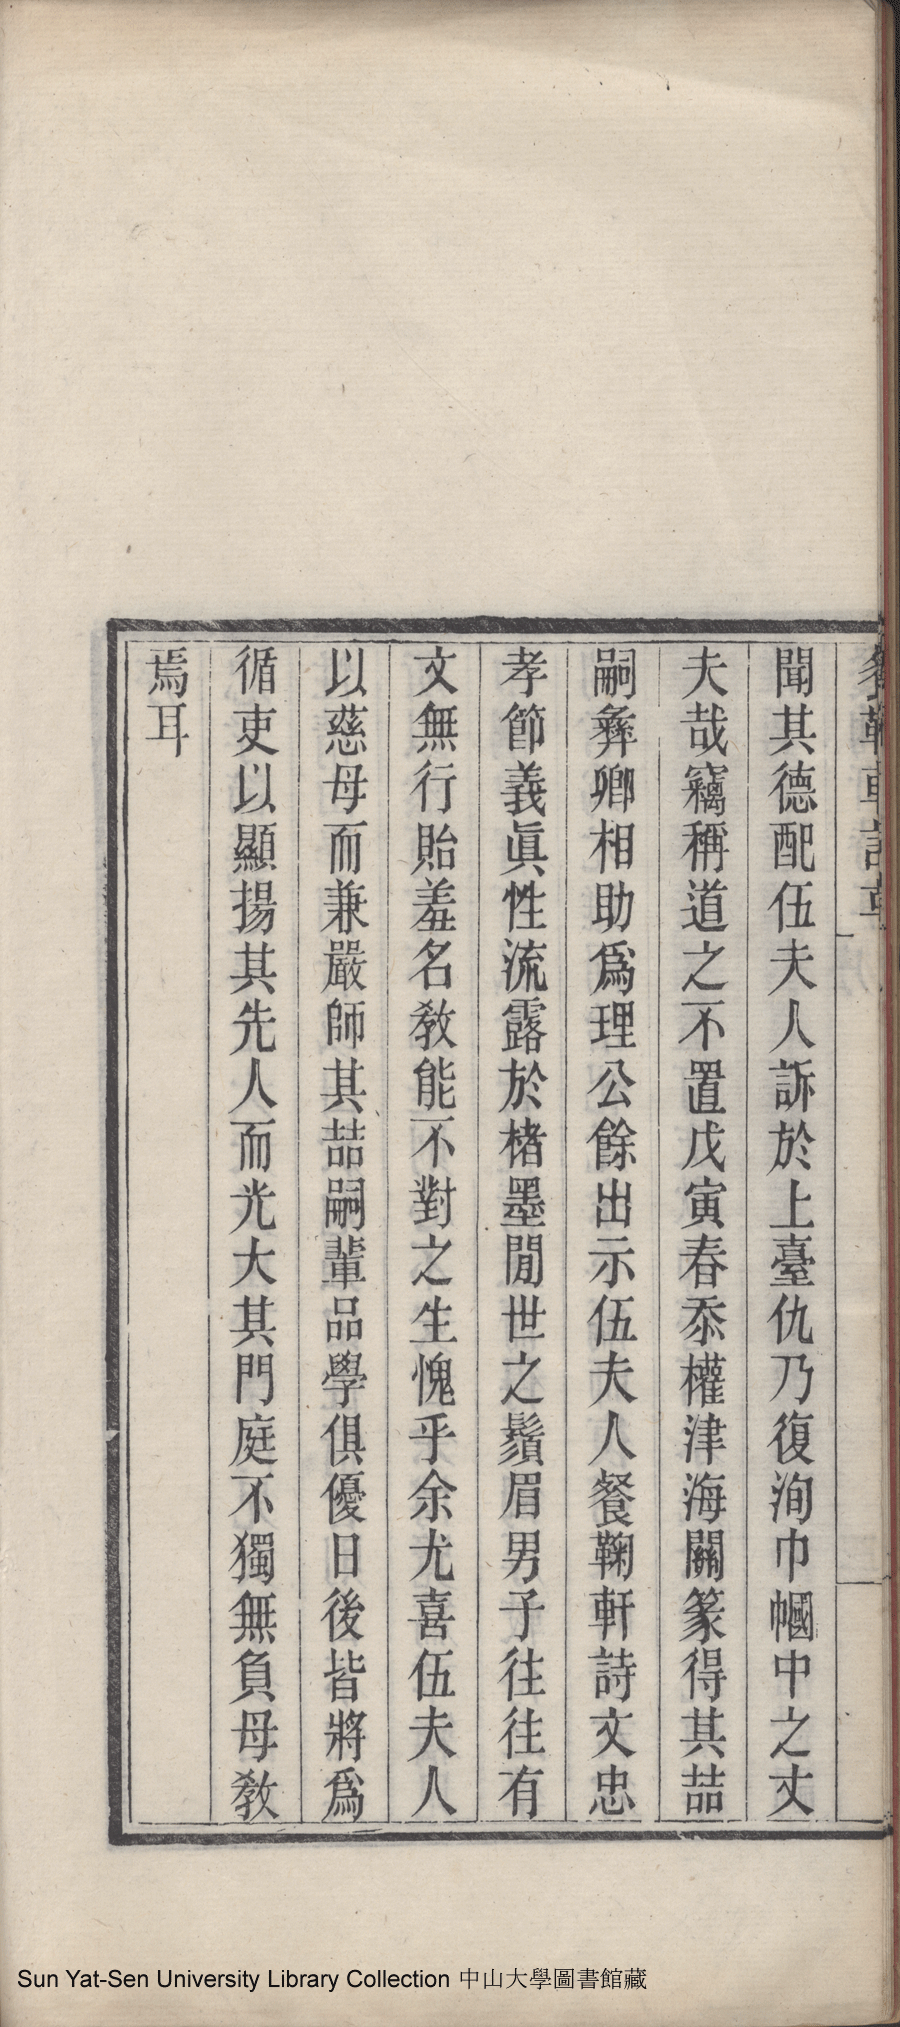 聞其德配伍夫人訴於上臺仇乃復洵巾幗中之丈
夫哉竊稱道之不置戊寅春忝權津海關篆得其喆
嗣彝卿相助為理公餘出示伍夫人餐鞠軒詩文忠
孝節義眞性流露於楮墨閒世之鬚眉男子往往有
文無行貽羞名教能不對之生愧乎余尤喜伍夫人
以慈母而兼嚴師其喆嗣輩品學俱優日後皆將為
循吏以顯揚其先人而光大其門庭不獨無負母教
焉耳
Sun Yat-Sen University Library Collection 中山大學圖書館藏